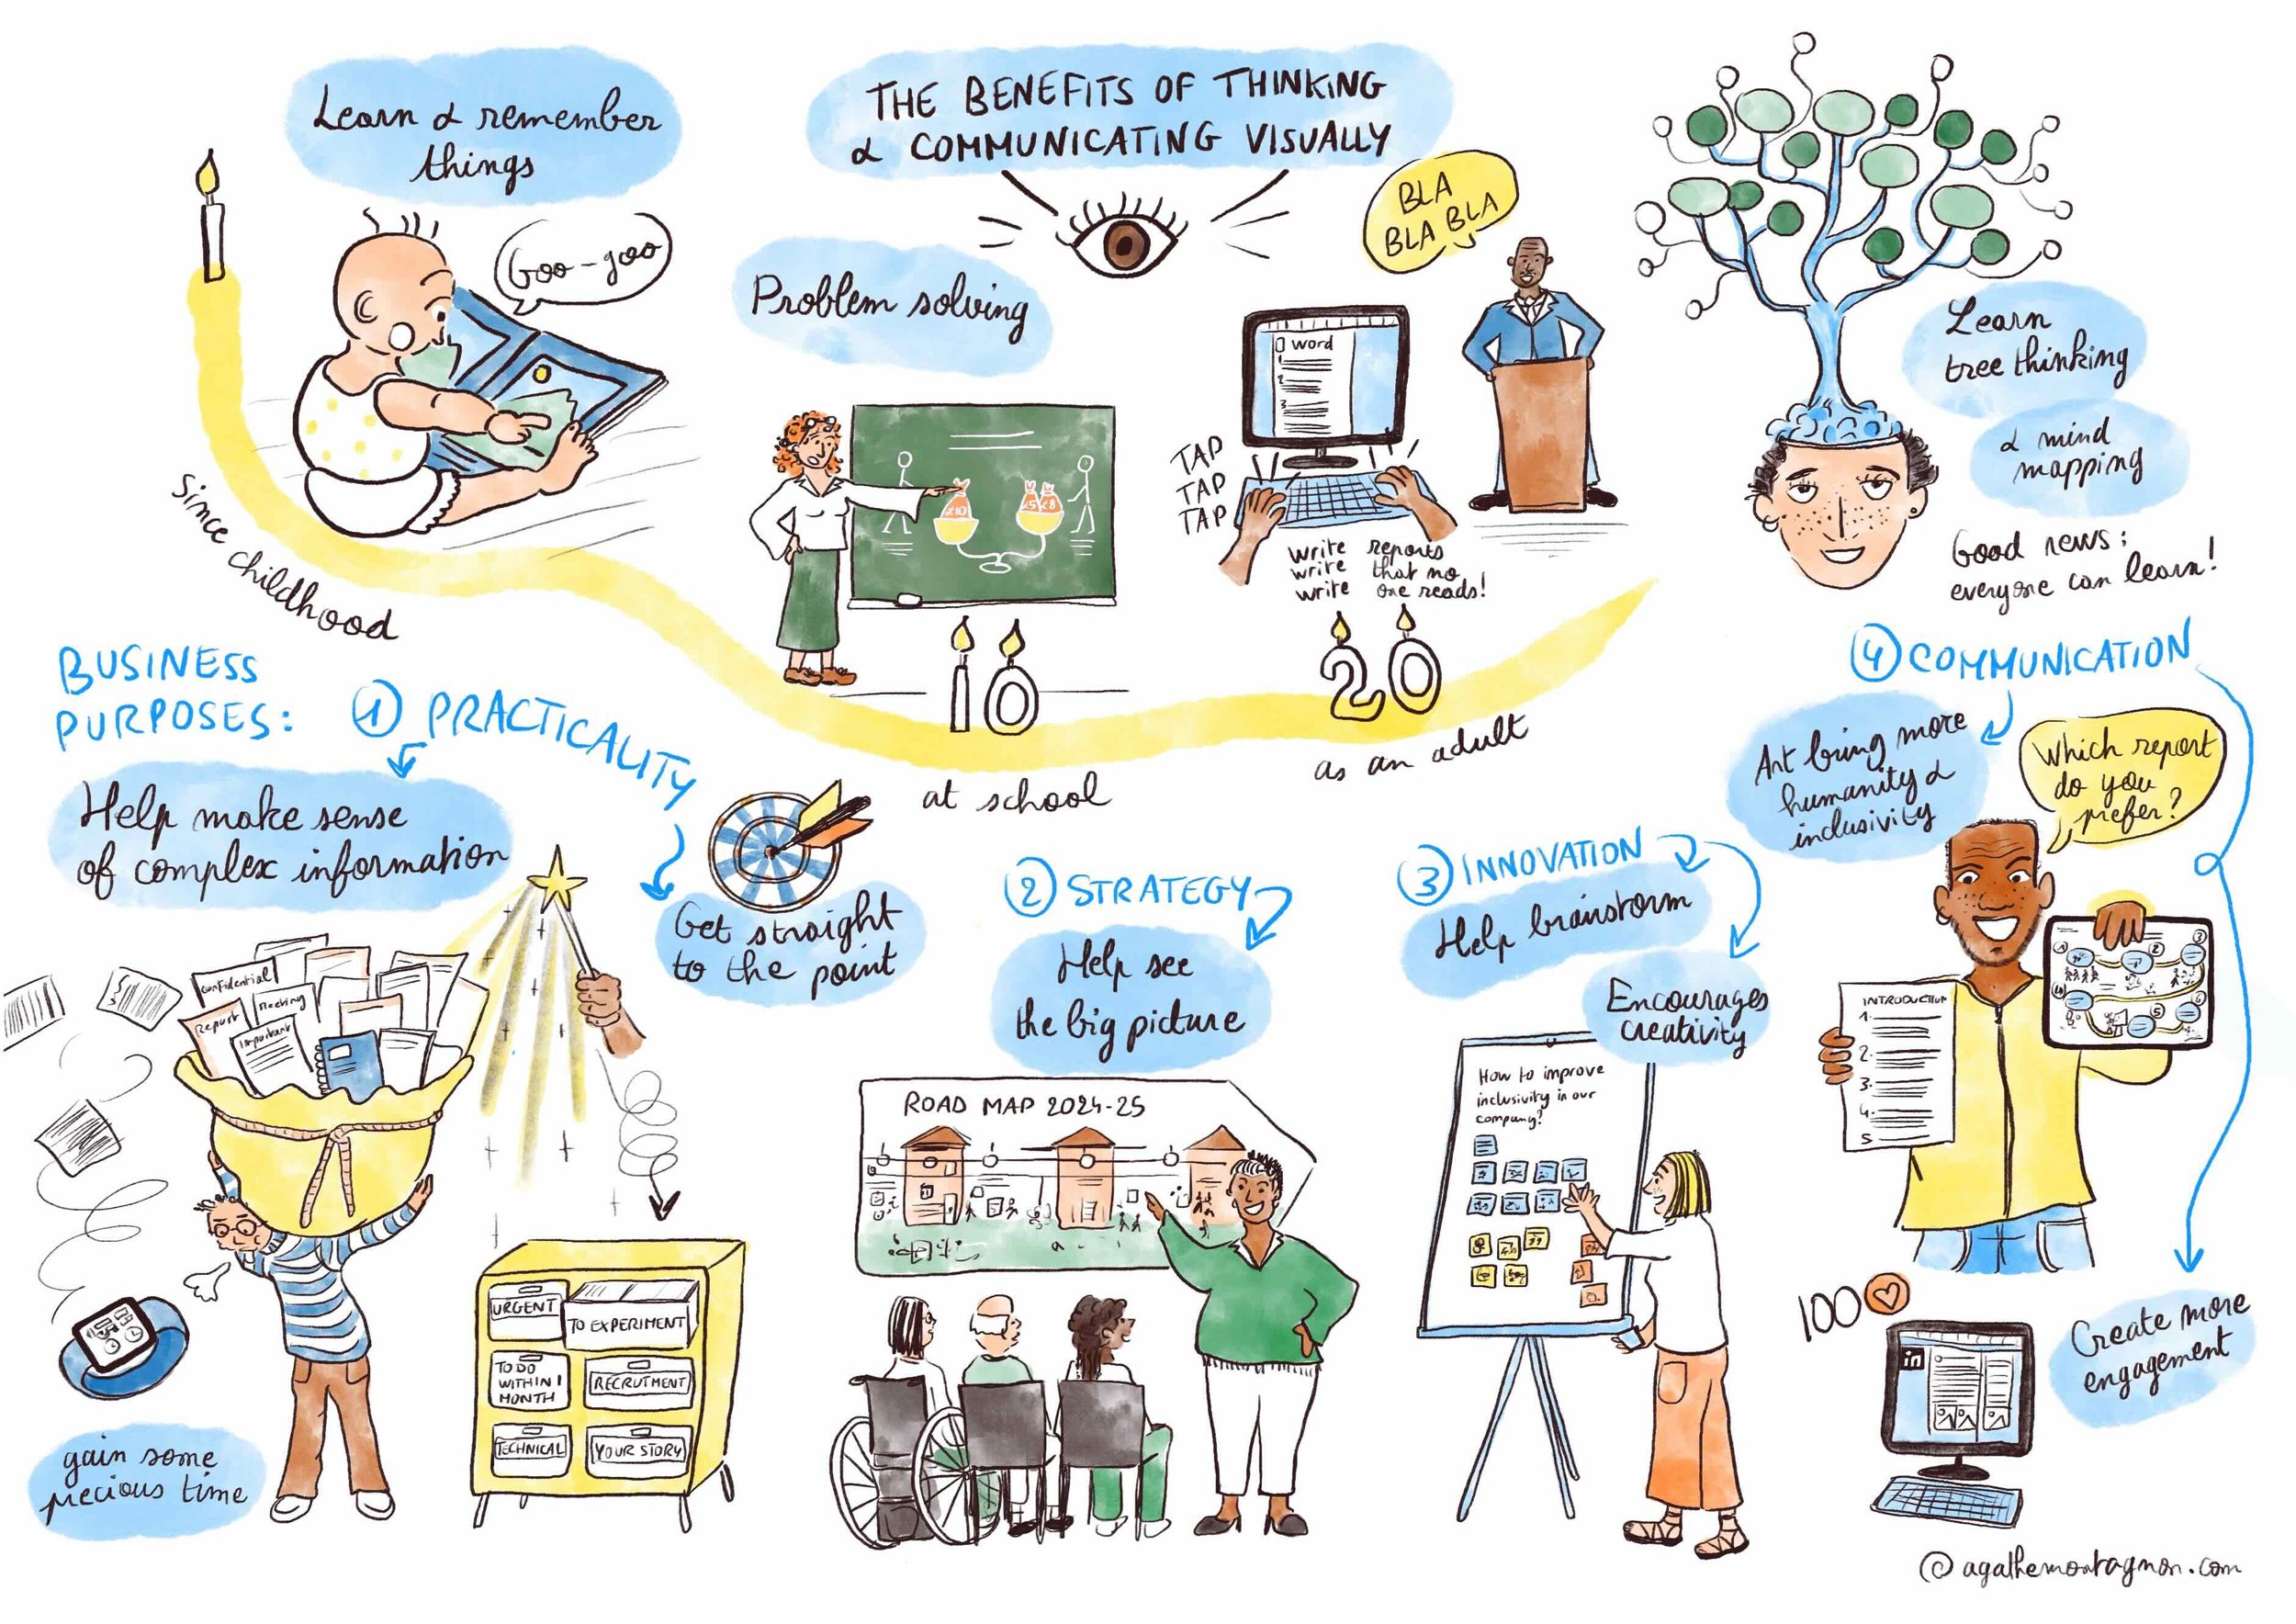 THE BENEFITS OF THINKING
& COMMUNICATING VISUALLY
Learn & remember
things
Goo-goo
since childhood
Problem solving
£10
£5
£8
10
at school
BLA
BLA BLA
word
1
2
3
TAP
TAP
TAP
write reports
write that no
write one reads!
20
as an adult
Learn
tree thinking
& mind
mapping
Good news:
everyone can learn!
BUSINESS
PURPOSES:
1 PRACTICALITY
Help make sense
of complex information
Get straight
to the point
Confidential
Meeting
Report
Important
gain some
precious time
URGENT
TO EXPERIMENT
TO DO
WITHIN 1
MONTH
RECRUTMENT
TECHNICAL
YOUR STORY
2 STRATEGY
Help see
the big picture
ROAD MAP 2024-25
3 INNOVATION
Help brainstorm
Encourages
creativity
How to improve
inclusivity in our
company?
4 COMMUNICATION
Art bring more
humanity &
inclusivity
Which report
do you
prefer?
INTRODUCTION
1.
2.
3.
4.
5
1
2
3
4
5
6
100
in
Create more
engagement
© agathemontagnon.com